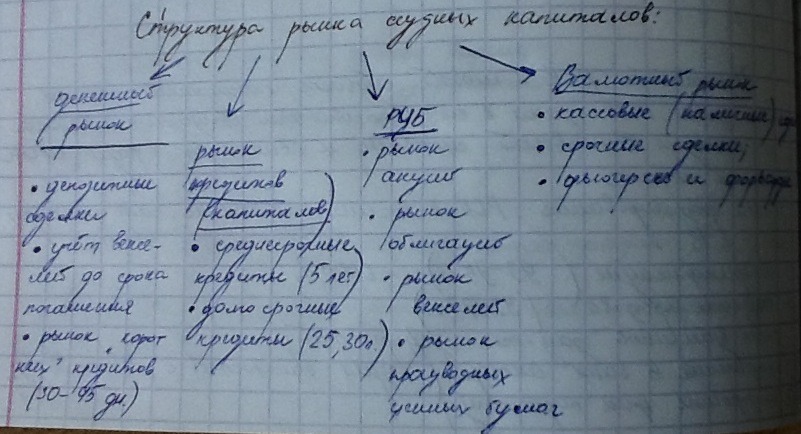 Структура рынка ссудных капиталов:
денежный
рынок
• депозитные
сделки
• учёт вексе-
лей до срока
погашения
• рынок "корот
ких" кредитов
(30-95 дн.)
рынок
кредитов
(капиталов)
• среднесрочные
кредиты (5 лет)
• долгосрочные
кредиты (25,30л.)
РЦБ
• рынок
акций
• рынок
облигаций
• рынок
векселей
• рынок
производных
ценных бумаг
Валютный рынок
• кассовые (наличные)
• срочные сделки;
• фьючерсные и форвардн